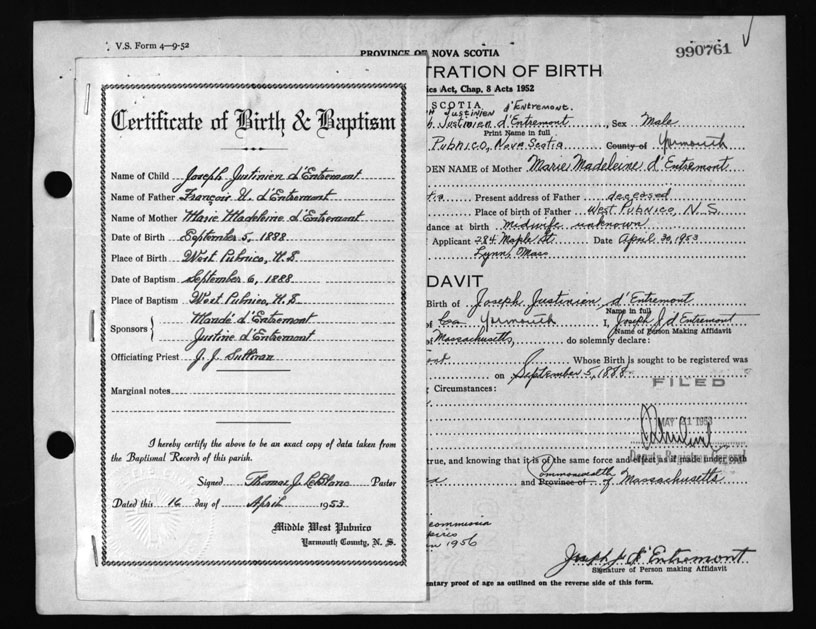 V.S. Form 4-9-52
PROVINCE OF NOVA SCOTIA
990761
TRATION OF BIRTH
ics Act, Chap. 8 Acts 1952
Certificate of Birth & Baptism
Name of Child Joseph Justinien d'Entremont
Name of Father François U. d'Entremont
Name of Mother Marie Madeleine d'Entremont
Date of Birth September 5, 1888
Place of Birth West Pubnico, N.S.
Date of Baptism September 6, 1888
Place of Baptism West Pubnico, N.S.
Sponsors { Mandé d'Entremont
Justine d'Entremont
Officiating Priest J. J. Sullivan
Marginal notes
I hereby certify the above to be an exact copy of data taken from
the Baptismal Records of this parish.
Signed Thomas J. LeBlanc Pastor
Dated this 16 day of April 1953
Middle West Pubnico
Yarmouth County, N. S.
SCOTIA
JUSTINIEN d'Entremont.
Justinien d'Entremont Sex Male
Print Name in full
Pubnico, Nova Scotia County of Yarmouth
DEN NAME of Mother Marie Madeleine d'Entremont
Present address of Father deceased
Place of birth of Father West Pubnico, N.S.
dance at birth midwife unknown
Applicant 284 Maple St. Date April 30, 1953
Lynn, Mass
DAVIT
Birth of Joseph Justinien d'Entremont
Name in full
of Yarmouth I, Joseph J. d'Entremont
Name of Person Making Affidavit
of Massachusetts, do solemnly declare:
Whose Birth is sought to be registered was
on September 5, 1888
Circumstances:
FILED
MAY 21 1953
Deputy Registrar General
true, and knowing that it is of the same force and effect as if made under oath
and Province of Commonwealth of Massachusetts
commission
expires
1956
Joseph J. d'Entremont
Signature of Person making Affidavit
entary proof of age as outlined on the reverse side of this form.